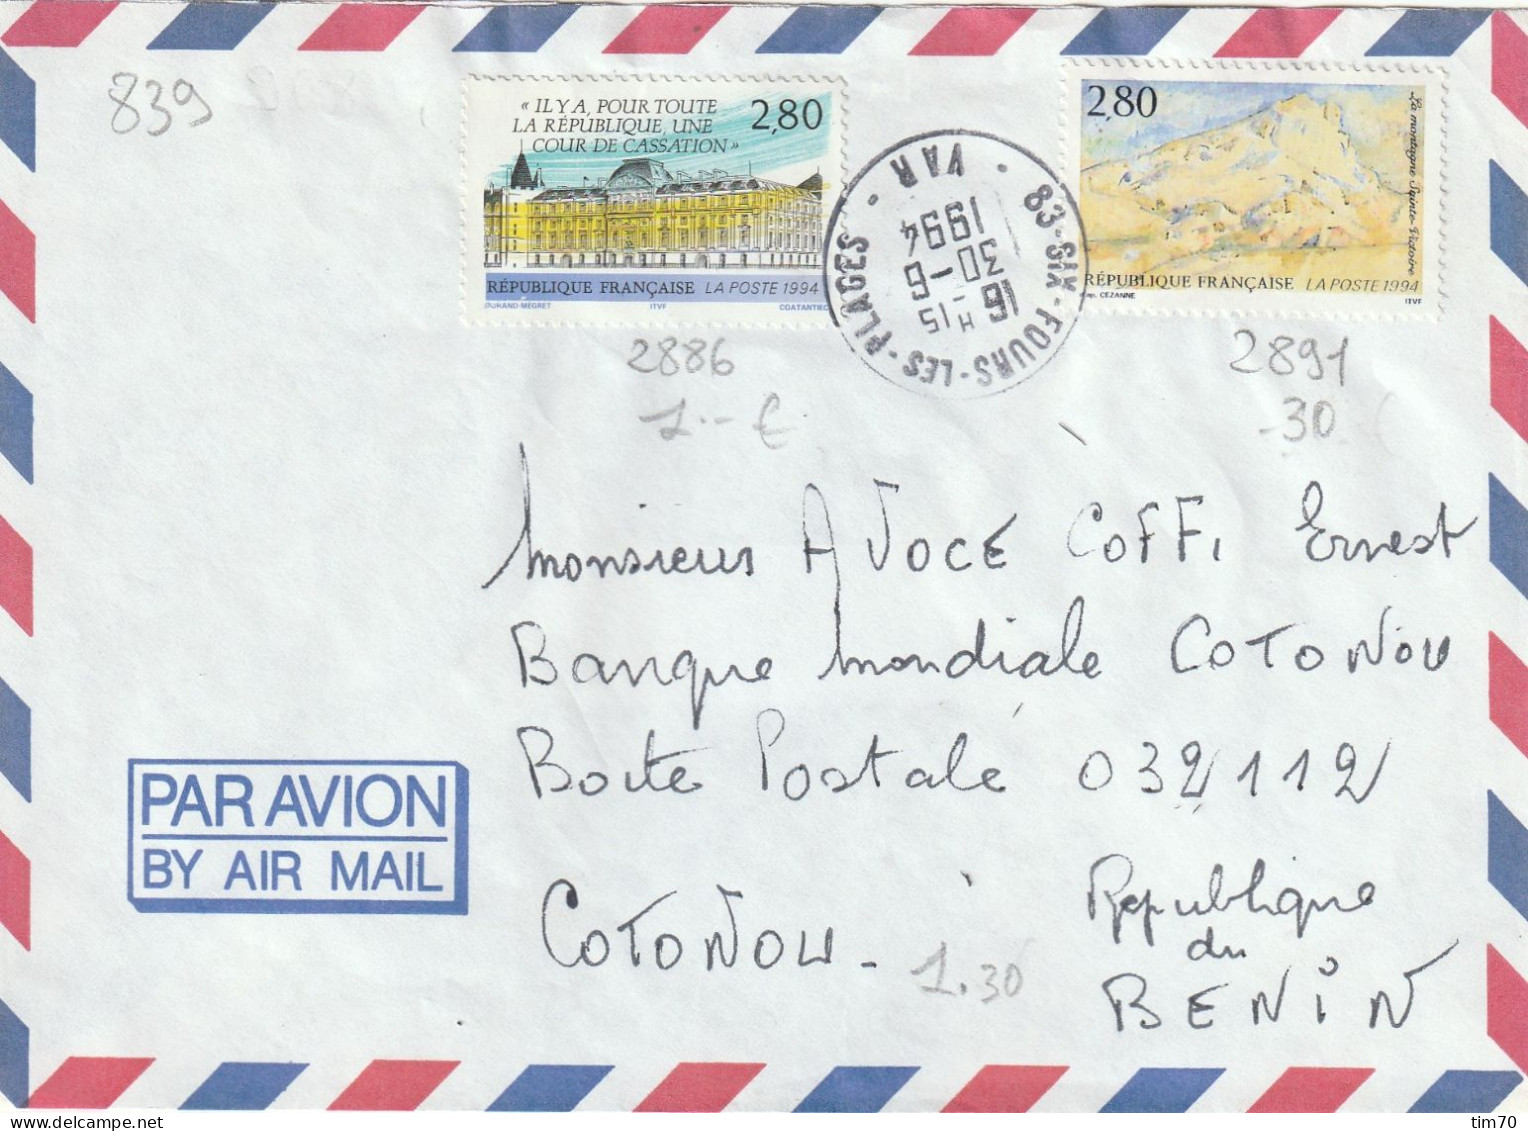 839
« IL Y A, POUR TOUTE
LA RÉPUBLIQUE, UNE
COUR DE CASSATION »
2,80
RÉPUBLIQUE FRANÇAISE LA POSTE 1994
DURAND-MEGRET ITVF COATANTIEC
83-SIX-FOURS-LES-PLAGES - VAR -
16 H 15
30-6
1994
2,80
La montagne Sainte-Victoire
RÉPUBLIQUE FRANÇAISE LA POSTE 1994
CEZANNE ITVF
2886
1.-€
2891
-30
Monsieur AVOCE COFFI Ernest
Banque Mondiale COTONOU
Boite Postale 032112
COTONOU -
1.30
Republique
du
BENIN
PAR AVION
BY AIR MAIL
tim70